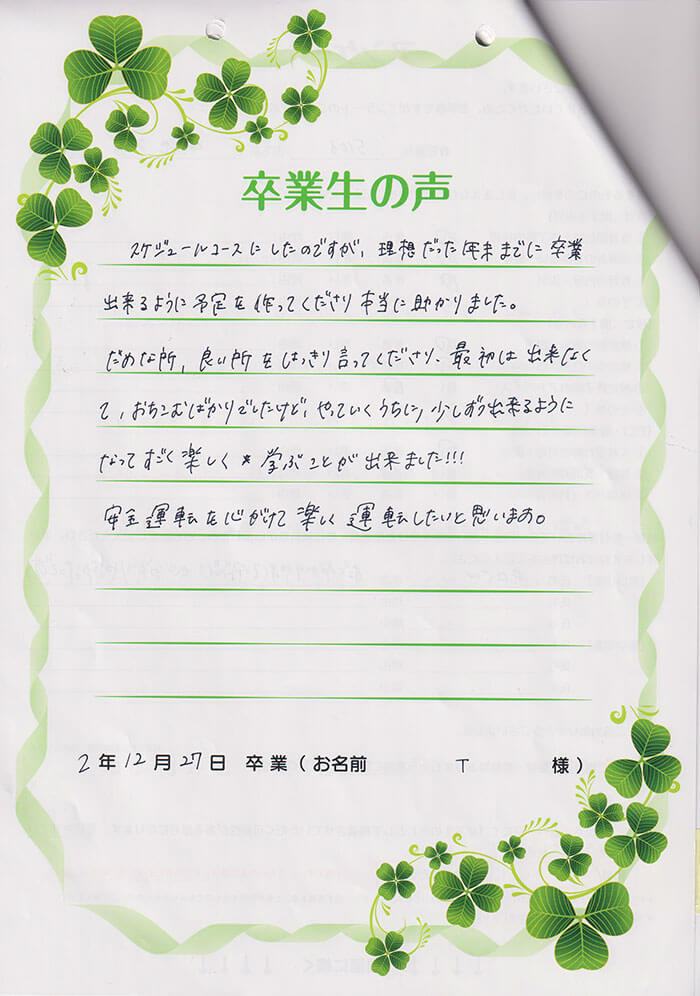 卒業生の声
スケジュールコースにしたのですが、理想だった年末までに卒業
出来るように予定を作ってくださり本当に助かりました。
だめな所、良い所をはっきり言ってくださり、最初は出来なく
て、おちこむばかりでしたけど、やっていくうちに、少しずつ出来るように
なってすごく楽しく学ぶことが出来ました!!!
安全運転を心がけて楽しく運転したいと思います。
2年12月27日 卒業(お名前 T 様)